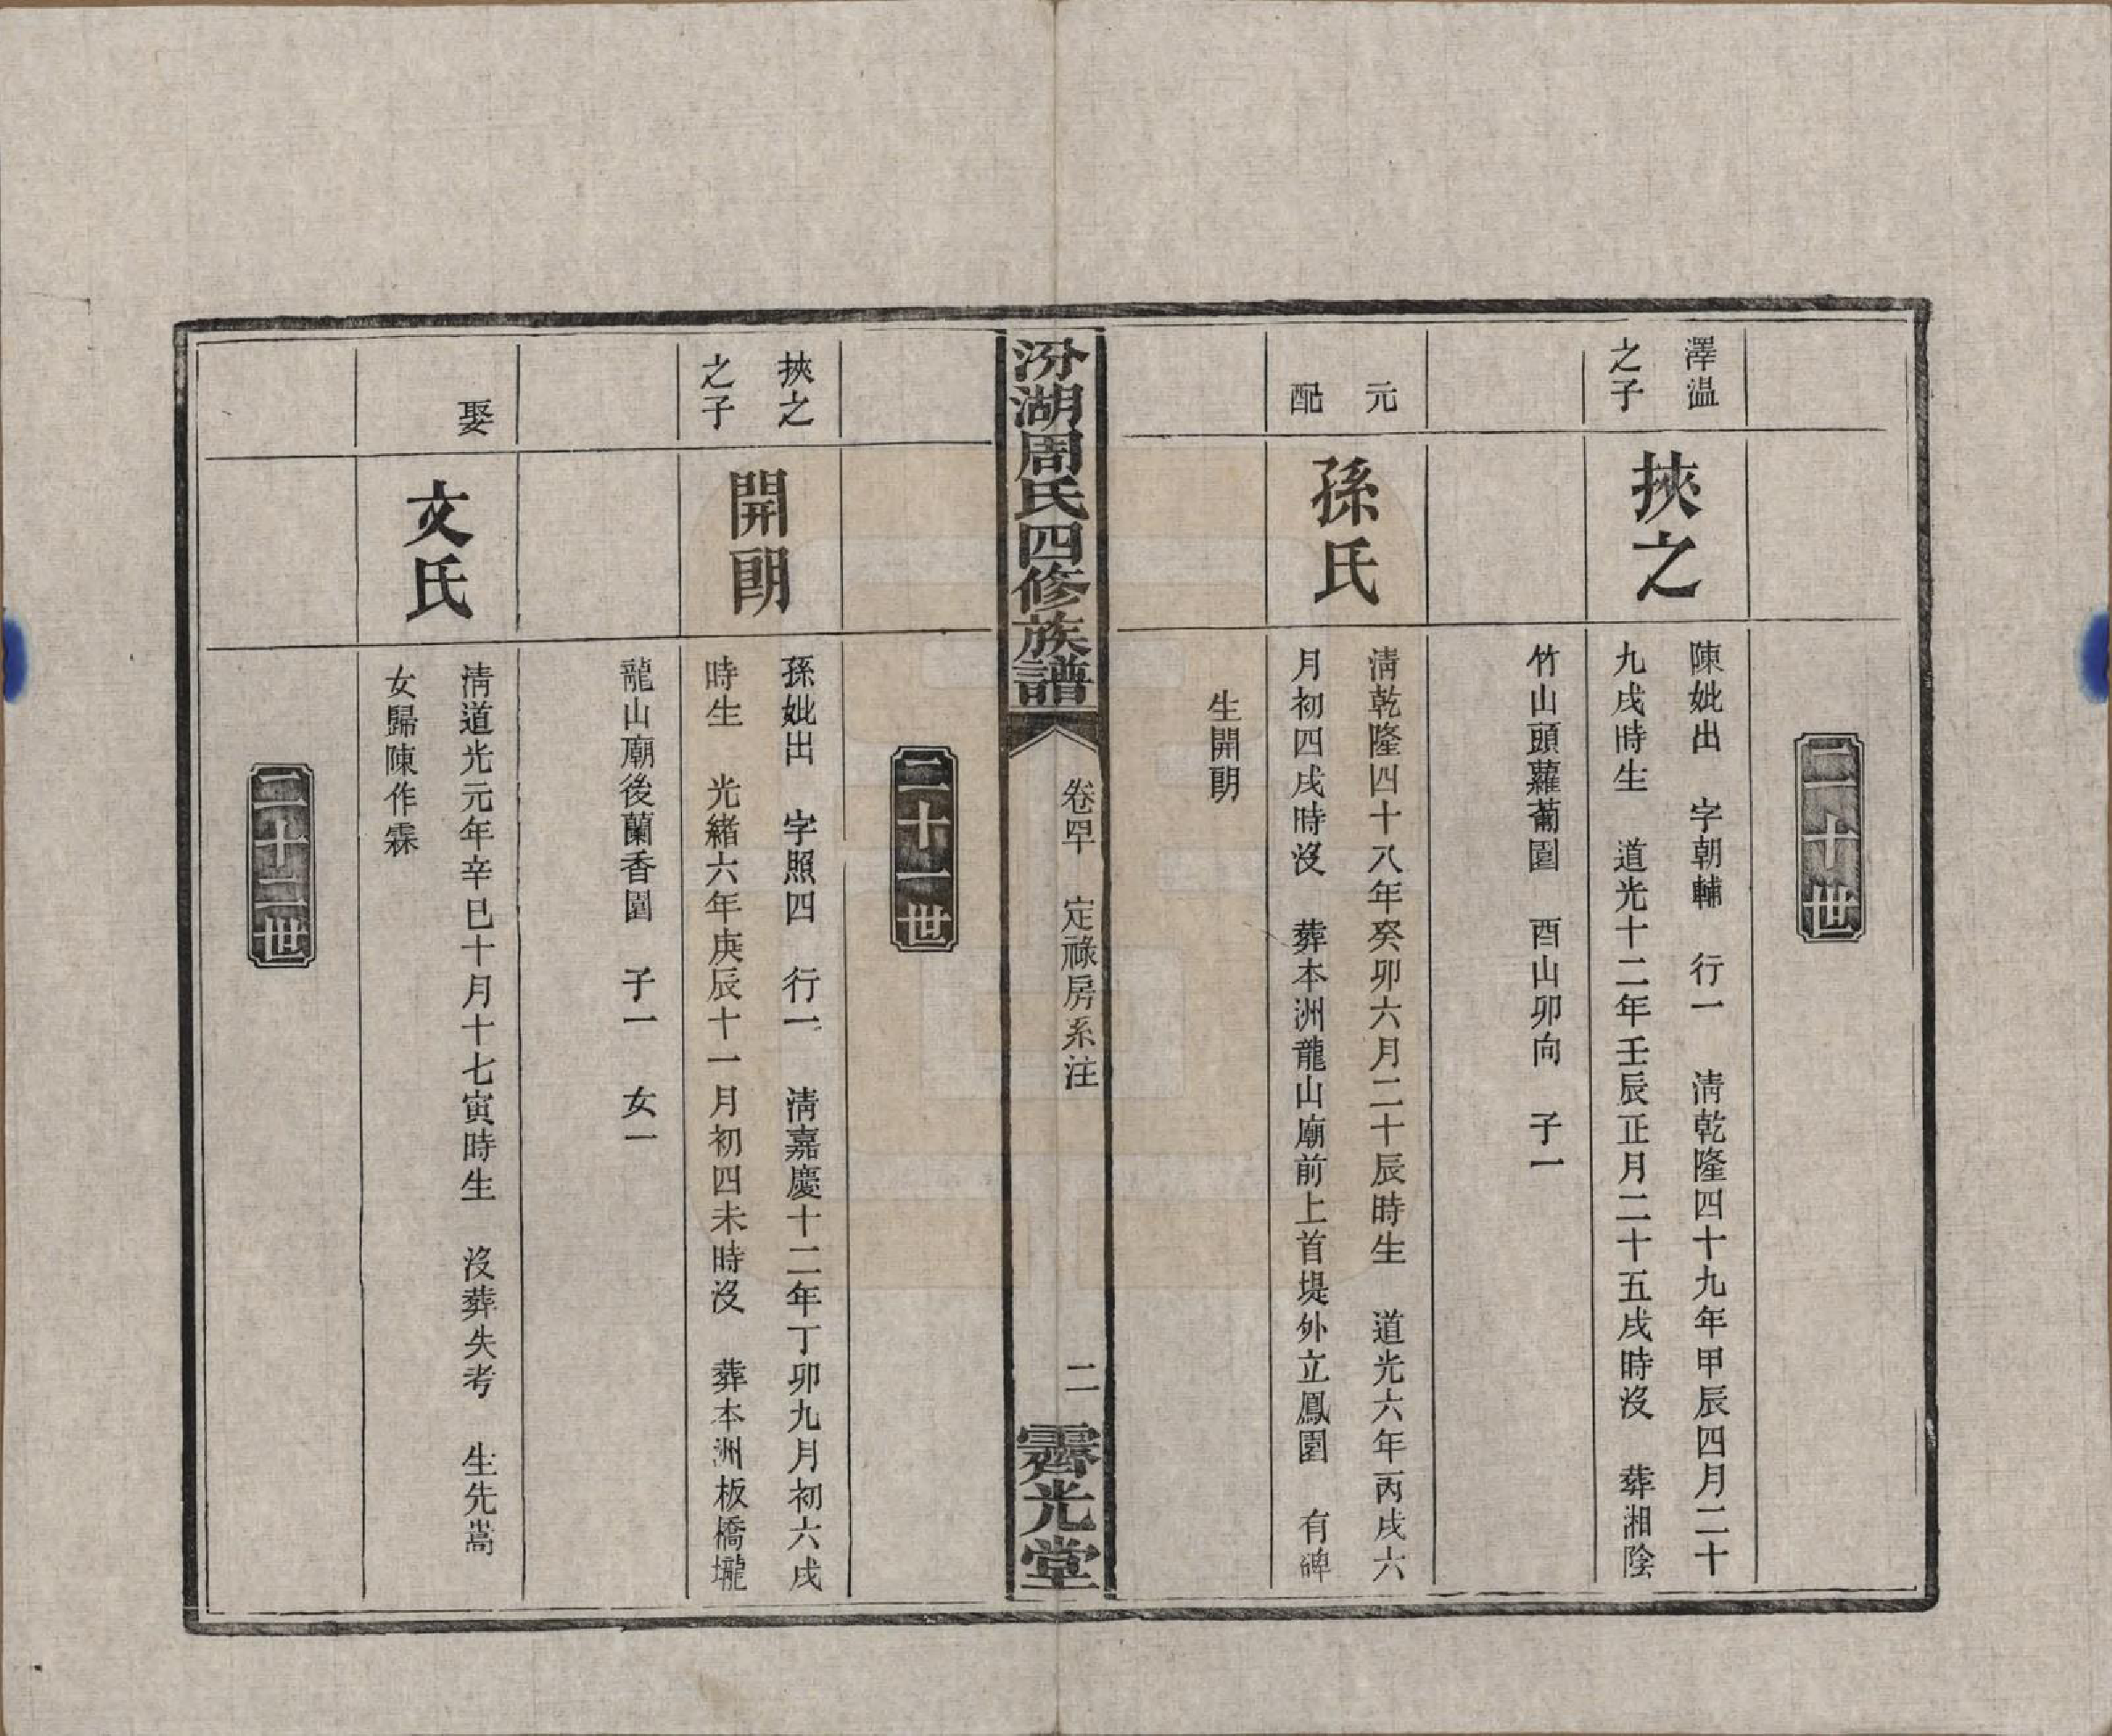 二十世
澤温
之子
挾之
陳妣出　字朝輔　行一　淸乾隆四十九年甲辰四月二十
九戌時生　道光十二年壬辰正月二十五戌時沒　葬湘陰
竹山頭蘿蔔園　酉山卯向　子一
元
配
孫氏
淸乾隆四十八年癸卯六月二十辰時生　道光六年丙戌六
月初四戌時沒　葬本洲龍山廟前上首堤外立鳳園　有碑
生開朗
汾湖周氏四修族譜
卷四十　定祿房系注
二
霽光堂
二十一世
挾之
之子
開朗
孫妣出　字照四　行一　淸嘉慶十二年丁卯九月初六戌
時生　光緒六年庚辰十一月初四未時沒　葬本洲板橋壠
龍山廟後蘭香園　子一　女一
娶
文氏
淸道光元年辛巳十月十七寅時生　沒葬失考　生先嵩
女歸陳作霖
二十二世